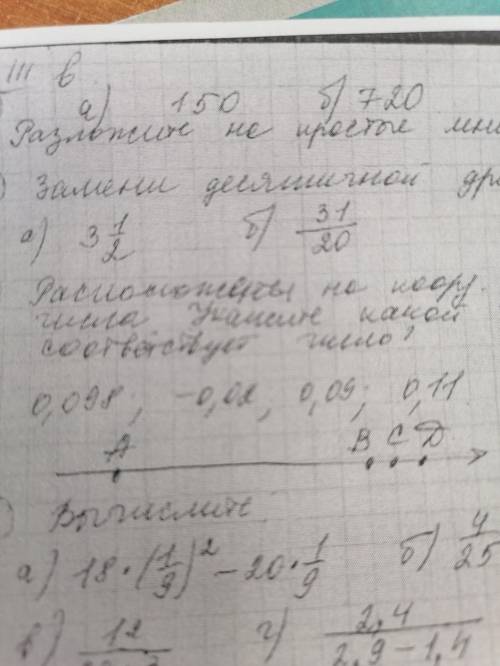 III в
а) 150 б) 720
Разложите на простые мно
Замени десятичной дро
а) 3 1/2 б) 31/20
Расположены на коор.
числа Укажите какой
соответствует число?
0,098; -0,02; 0,09; 0,11
A B C D
Вычислите
а) 18·(1/9)² - 20·1/9 б) 4/25
в) 12 г) 2,4/2,9-1,4